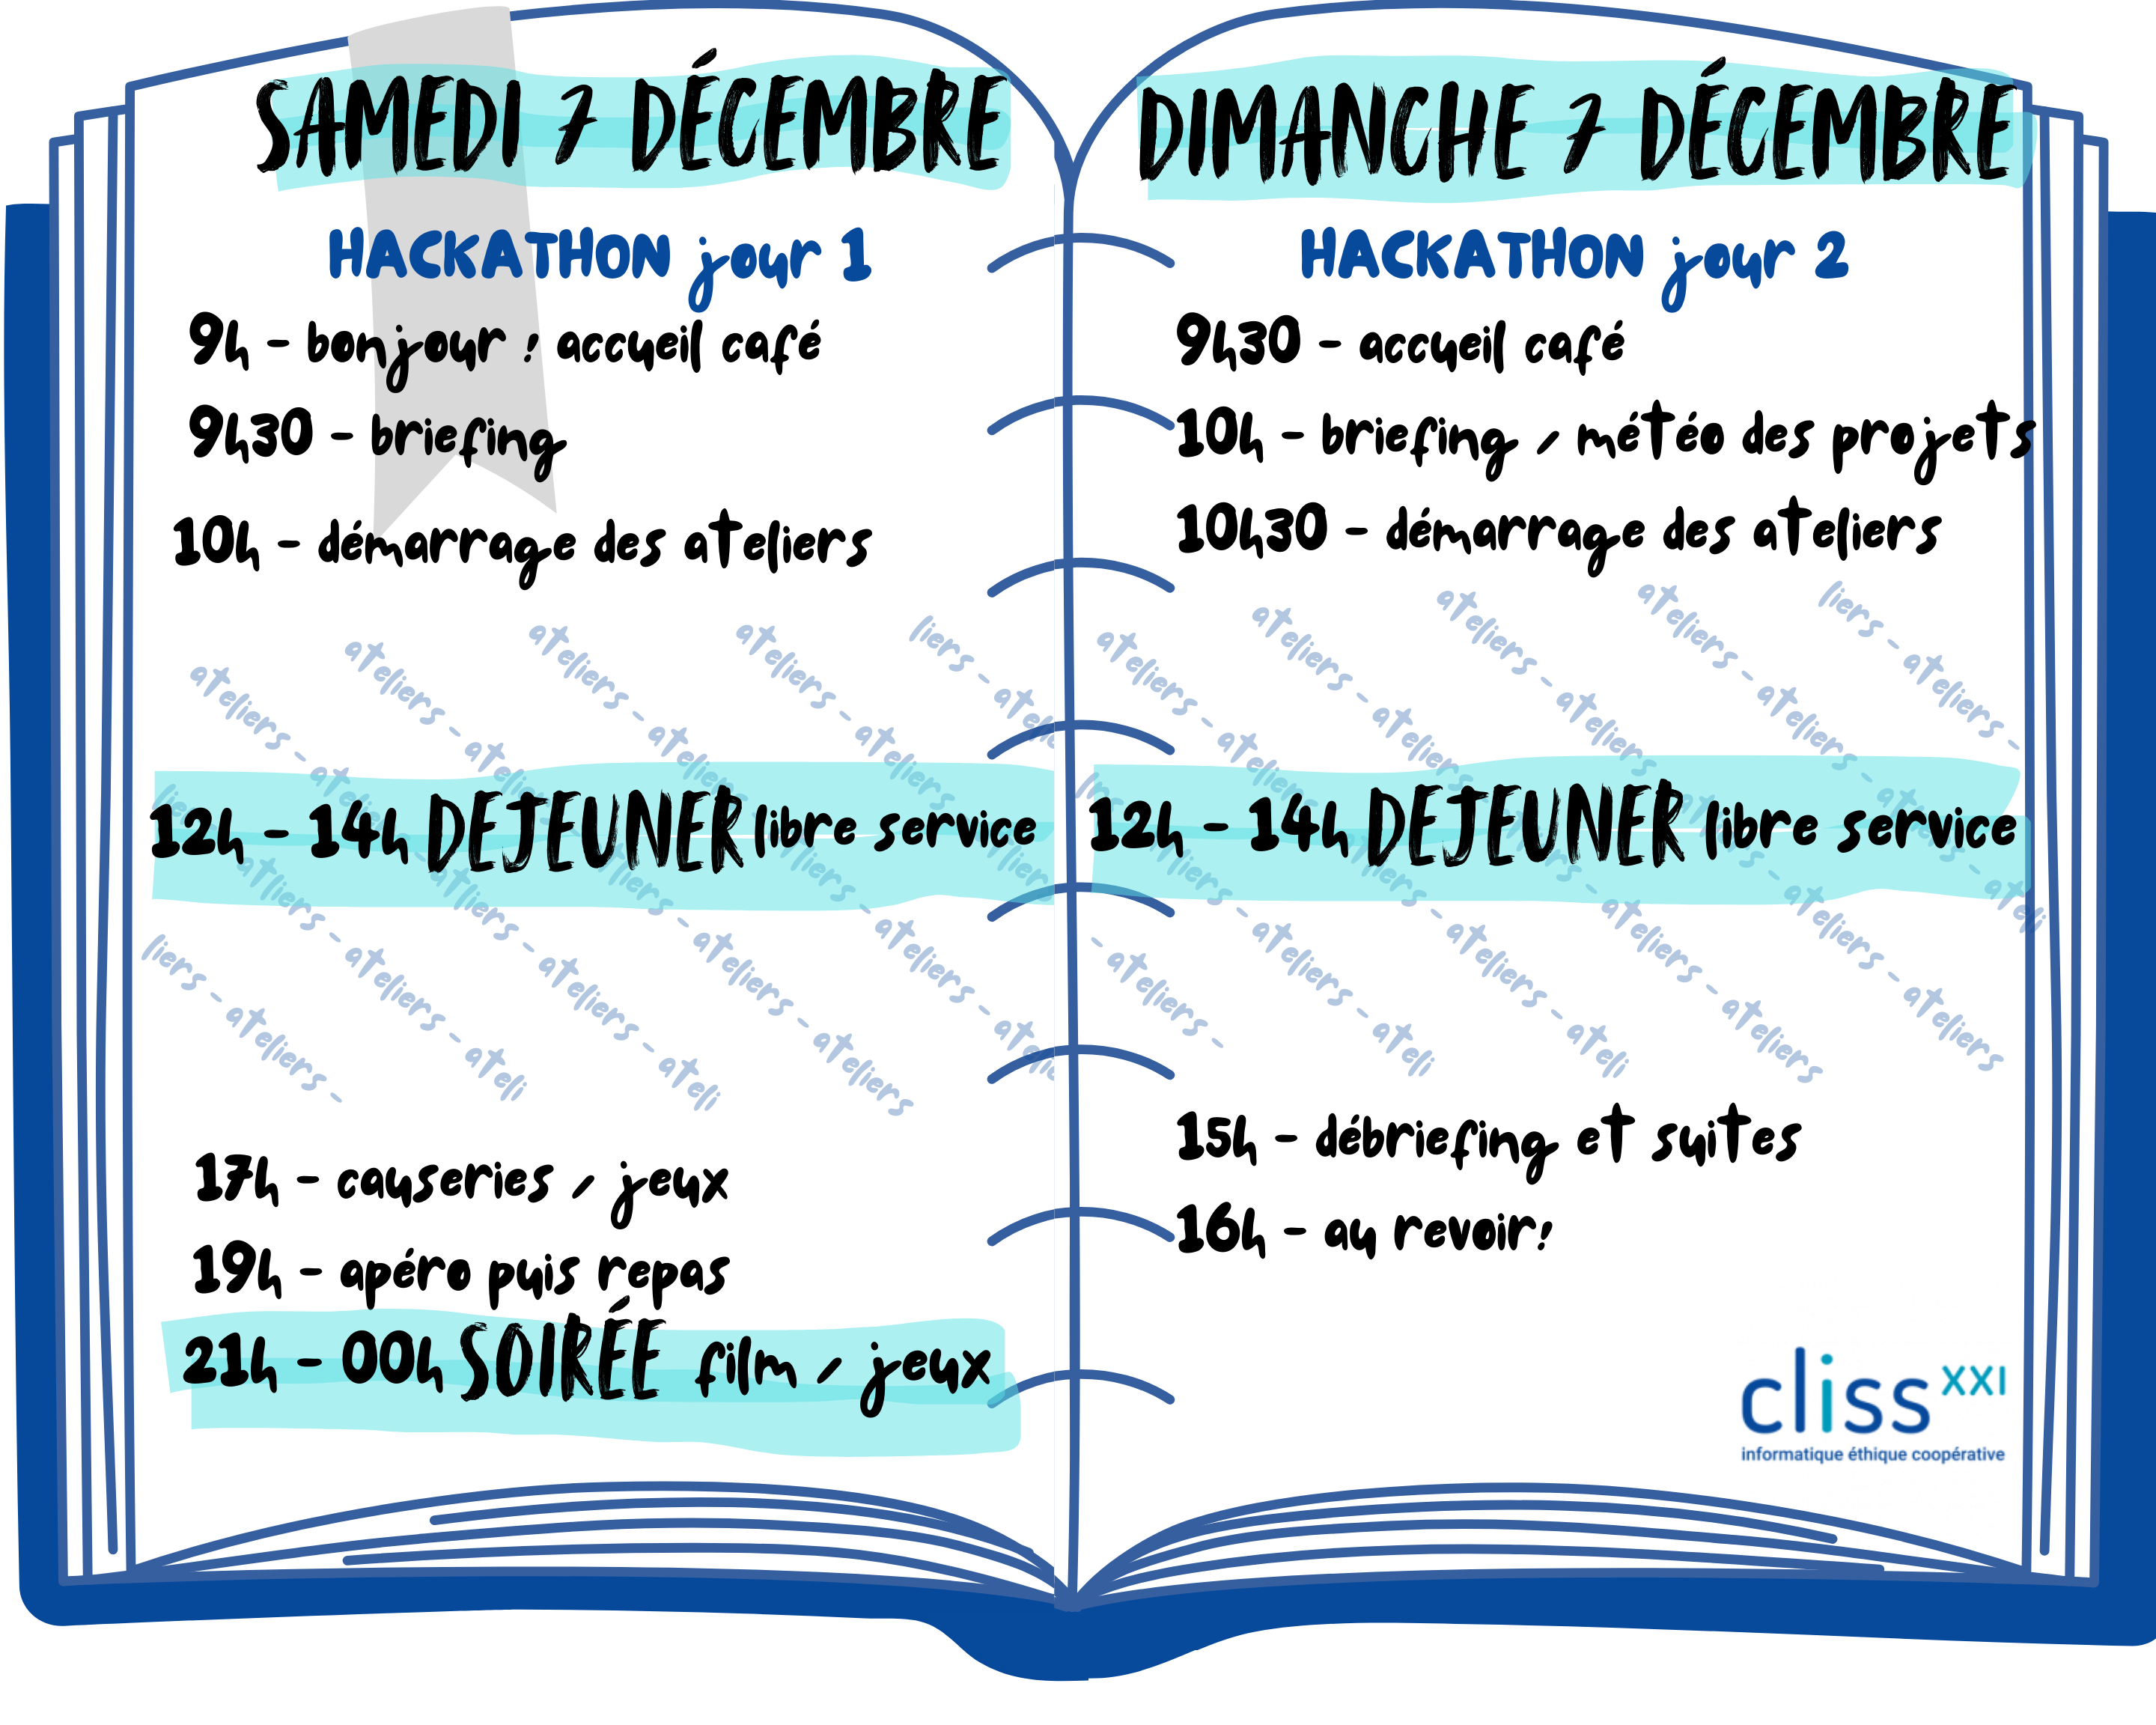 SAMEDI 7 DÉCEMBRE
HACKATHON jour 1
9h - bonjour ! accueil café
9h30 - briefing
10h - démarrage des ateliers
ateliers - ateliers - ateliers
12h - 14h DEJEUNER libre service
17h - causeries / jeux
19h - apéro puis repas
21h - 00h SOIRÉE film / jeux
DIMANCHE 7 DÉCEMBRE
HACKATHON jour 2
9h30 - accueil café
10h - briefing / météo des projets
10h30 - démarrage des ateliers
ateliers - ateliers - ateliers
12h - 14h DEJEUNER libre service
15h - débriefing et suites
16h - au revoir!
cliss XXI
informatique éthique coopérative